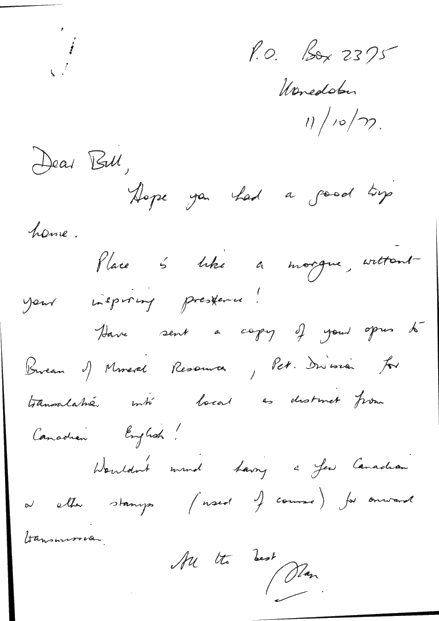 P.O. Box 2375
Konedobu
11/10/77.
Dear Bill,
Hope you had a good trip
home.
Place is like a morgue, without
your inspiring presence!
Have sent a copy of your opus to
Bureau of Mineral Resources, Pet. Division for
translation into local as distinct from
Canadian English!
Wouldn't mind having a few Canadian
or other stamps (used of course) for onward
transmission.
All the best
Alan